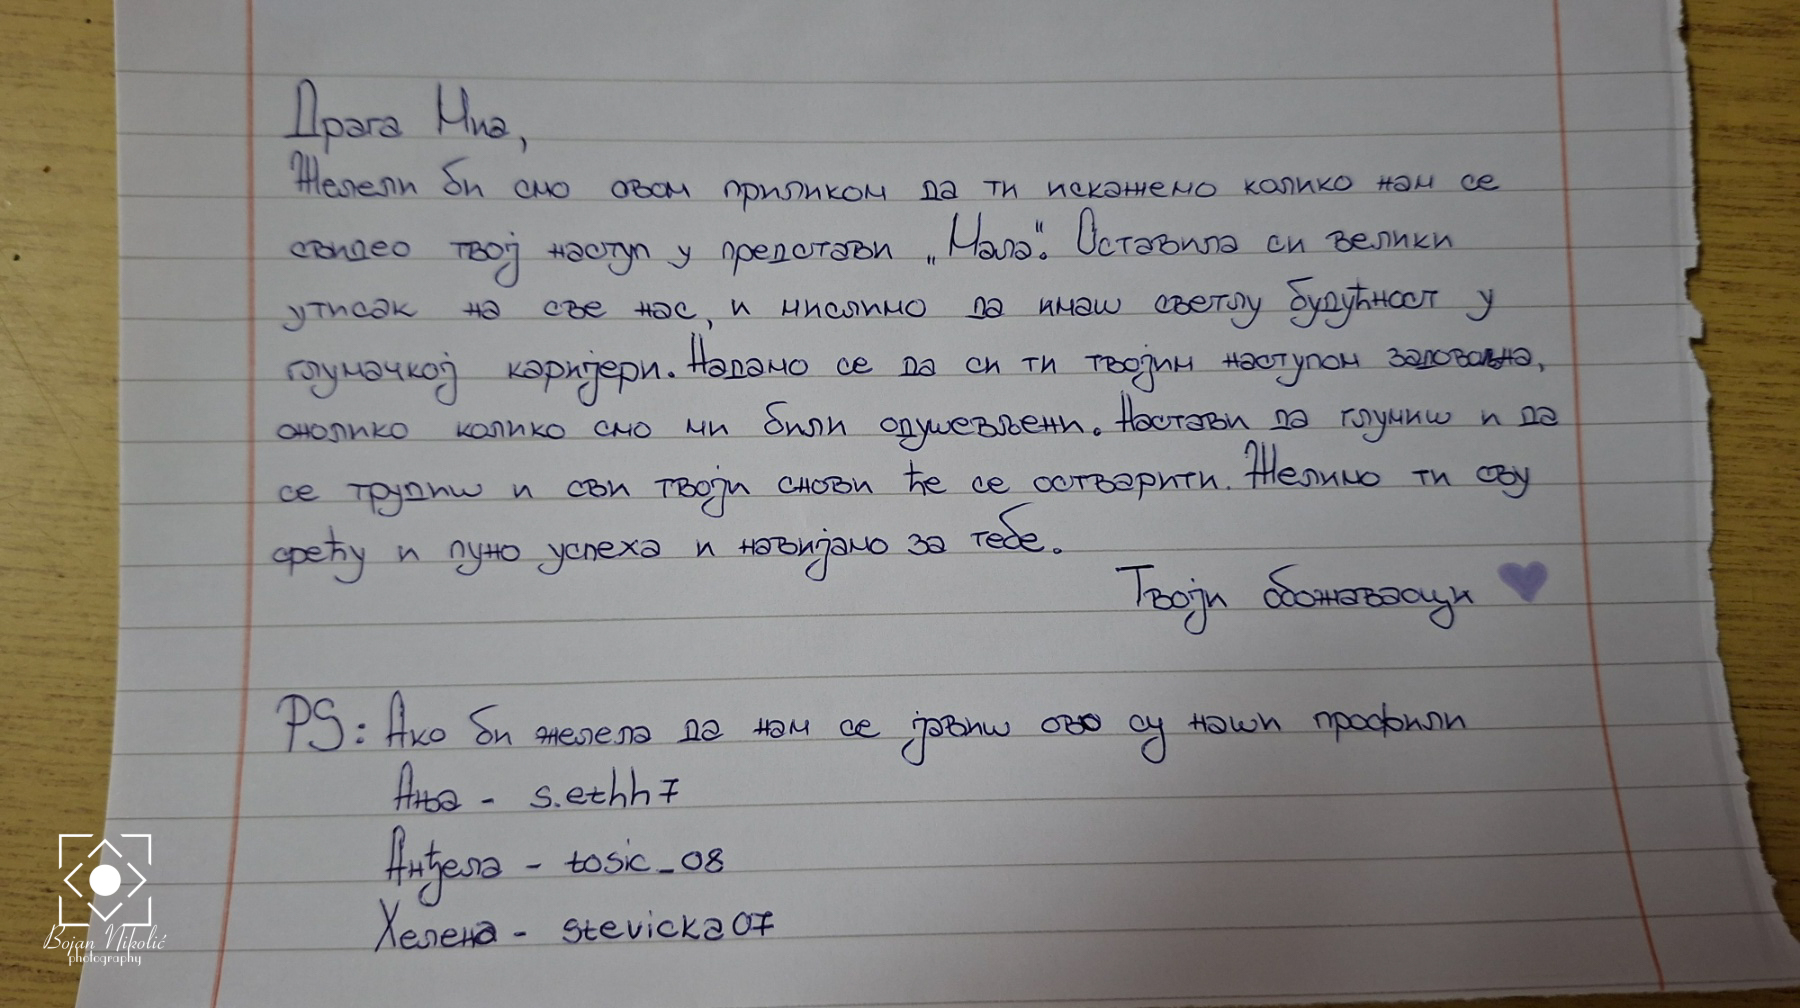 Драга Миа,
Желели би смо овом приликом да ти искажемо колико нам се
свидео твој наступ у представи „Мала“. Оставила си велики
утисак на све нас, и мислимо да имаш светлу будућност у
глумачкој каријери. Надамо се да си ти твојим наступом задовољна,
онолико колико смо ми били одушевљени. Настави да глумиш и да
се трудиш и сви твоји снови ће се остварити. Желимо ти сву
срећу и пуно успеха и навијамо за тебе.
Твоји обожаваоци
PS: Ако би желела да нам се јавиш ово су наши профили
Ања - s.ethh7
Анђела - tosic_08
Хелена - stevicka07
Bojan Nikolić
photography